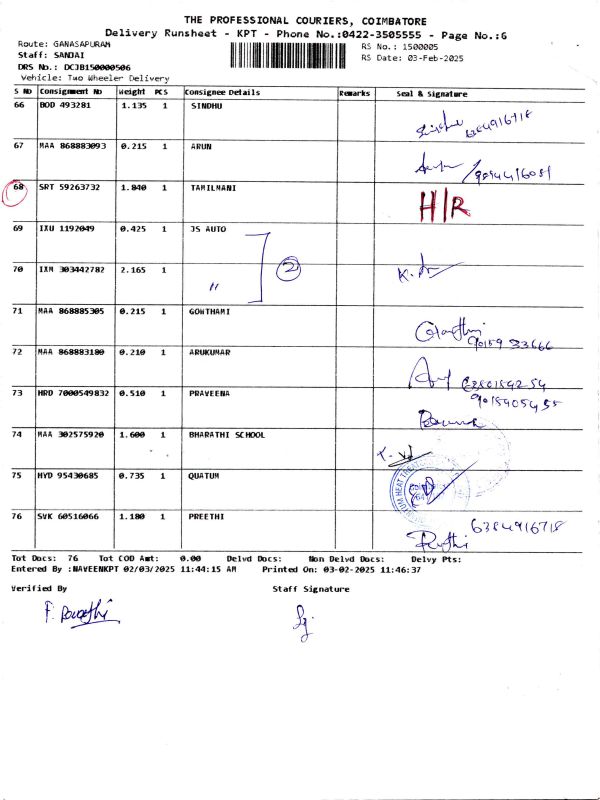 THE PROFESSIONAL COURIERS, COIMBATORE
Delivery Runsheet - KPT - Phone No.:0422-3505555 - Page No.:6
Route: GANASAPURAM
RS No.: 1500005
Staff: SANJAI
RS Date: 03-Feb-2025
DRS No.: DCJB150000506
Vehicle: Two Wheeler Delivery
S NO Consignment No Weight PCS Consignee Details Remarks Seal & Signature
66 BOD 493281 1.135 1 SINDHU
6384916718
67 MAA 868883093 0.215 1 ARUN
68 SRT 59263732 1.840 1 TAMILMANI H/R
69 IXU 1192049 0.425 1 JS AUTO
70 IXM 303442782 2.165 1 " 2
71 MAA 868885305 0.215 1 GOWTHAMI
Gowthmi
90159 33666
72 MAA 868883180 0.210 1 ARUKUMAR
73 HRD 7000549832 0.510 1 PRAVEENA
9015905435
74 MAA 302575920 1.600 1 BHARATHI SCHOOL
75 HYD 95430685 0.735 1 QUATUM
76 SVK 60516066 1.180 1 PREETHI
6384916718
Tot Docs: 76 Tot COD Amt: 0.00 Delvd Docs: Non Delvd Docs: Delvy Pts:
Entered By :NAVEENKPT 02/03/2025 11:44:15 AM Printed On: 03-02-2025 11:46:37
Verified By Staff Signature